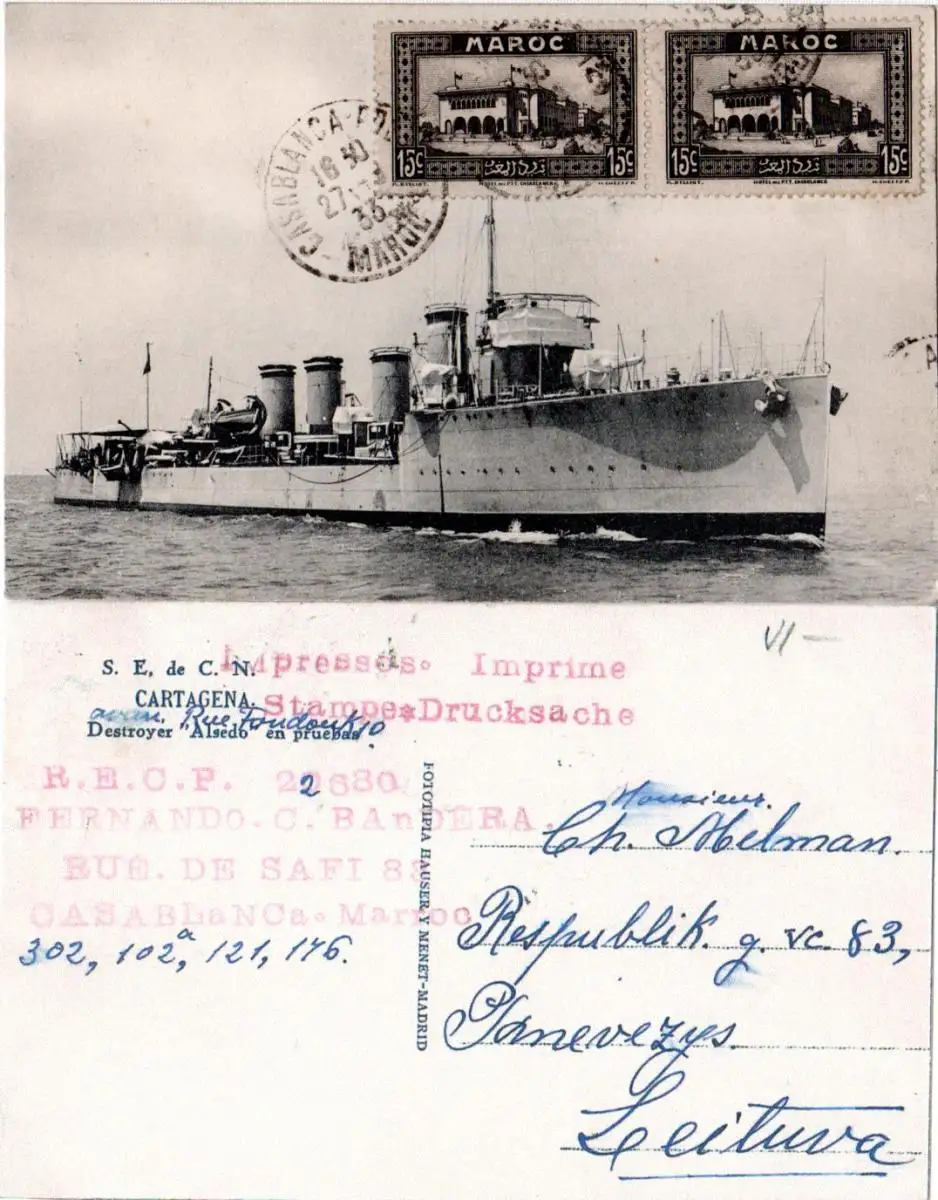 MAROC
MAROC
15c 15c
15c 15c
HOTEL DES P.T.T. CASABLANCA
HOTEL DES P.T.T. CASABLANCA
CASABLANCA-PO
16 30
27
33
MAROC
VI —
S. E. de C. N.
CARTAGENA.
Destroyer "Alsedo" en pruebas
Impressos. Imprime
Stampe*Drucksache
Rue
R.E.C.P. 22680
FERNANDO.C.BAnDERA.
RUE. DE SAFI 83
CASABLaNCa. Marroc
302, 102a, 121, 176.
FOTOTIPIA HAUSER Y MENET-MADRID
Monsieur.
Ch. Melman.
Respublik. g. vc. 83,
Panevezys.
Leituva